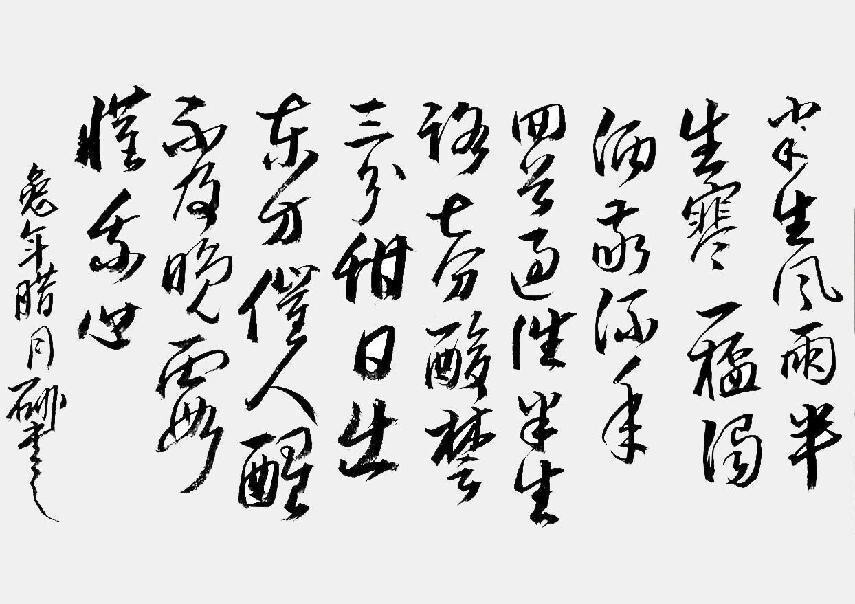 半生风雨半
生寒一杯浊
酒敬流年
回首过往半生
路七分酸楚
三分甜日出
东方催人醒
不及晚霞
懂我心
兔年腊月书